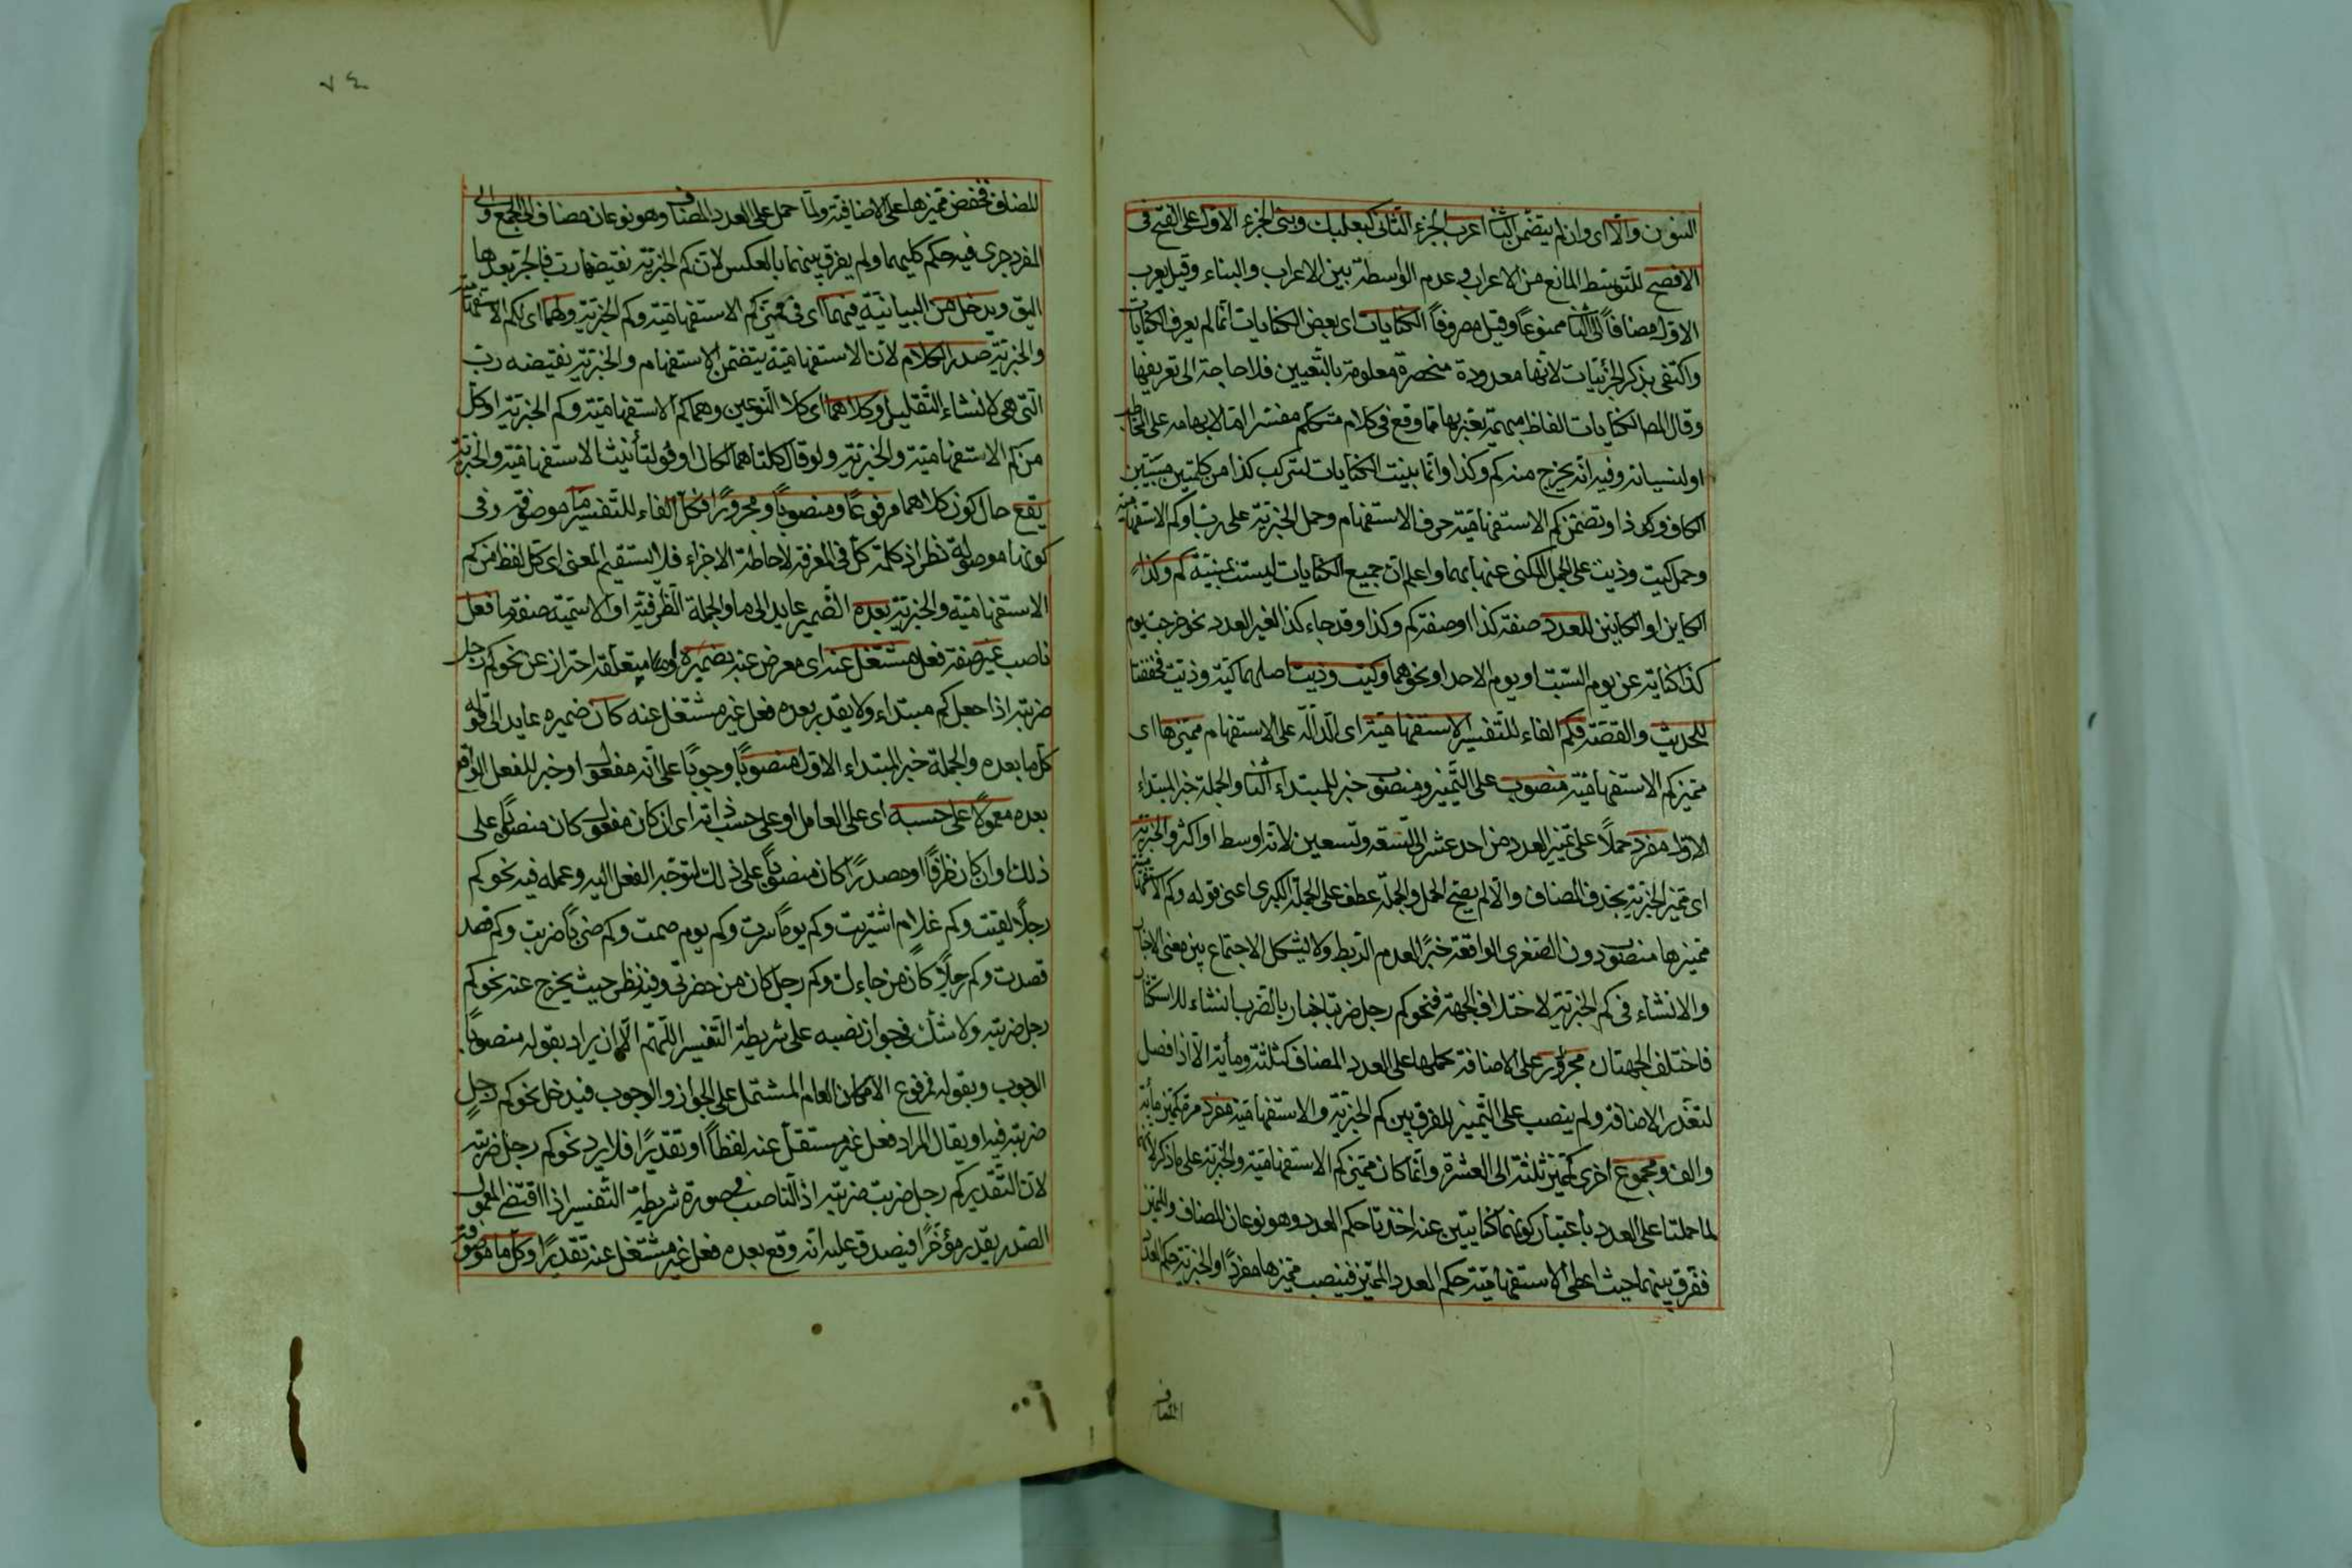 النون والا اى وان لم يتضمن الثا اعرب الجزء الثانى كبعلبك وبنى الجزء الاول على الفتح فى
الافصح للتوسط المانع من الاعراب وعدم الواسطة بين الاعراب والبناء وقيل يعرب
الاول مضافا الى الثا ممنوعا وقيل مصروفا الكنايات اى بعض الكنايات انما لم يعرف الكنايات
واكتفى بذكر الجزئيات لانها معدودة منحصرة معلومة بالتعيين فلا حاجة الى تعريفها
وقال المص الكنايات الفاظ مبهمة يعتبر بها مما وقع فى كلام متكلم مفسرا اما لابهامه على المخاطب
او لنسيانه وفيه انه يخرج منه كم وكذا وانما بنيت الكنايات لتركب كذا من كلمتين مبنيتين
الكاف وكى ذا وتضمن كم الاستفهامية حرف الاستفهام وحمل الخبرية على رب او كم الاستفهامية
وحمل كيت وذيت على الجمل المكنى عنها بهما واعلم ان جميع الكنايات ليست بمبنية كم وكذا
الكاين او الكاينين للعدد صفة كذا او صفة كم وكذا وقد جاء كذا لغير العدد نحو خرجت يوم
كذا كناية عن يوم السبت او يوم الاحد او نحوهما وكيت وذيت اصلهما كية وذية فخففتا
للحديث والقصة فكم الفاء للتفسير الاستفهامية اى الدالة على الاستفهام مميزها اى
مميز كم الاستفهامية منصوب على التميز ومنصوب خبر للمبتداء الثا والجملة خبر المبتداء
الاول مفرد حملا على تميز العدد من احد عشر الى التسعة وتسعين لانه اوسط او اكثر والخبرية
اى مميز الخبرية بحذف المضاف والا لم يصح الحمل والجملة عطف على الجملة الكبرى اعنى قوله وكم الاستفهامية
مميزها منصوب دون الصغرى الواقعة خبرا لعدم الربط ولا يشكل الاجتماع بين معنى الاخبار
والانشاء فى كم الخبرية لاختلاف الجهة فنحو كم رجل ضربته اخبار بالضرب انشاء للاستكثار
فاختلف الجهتان مجرور على الاضافة بحملها على العدد المضاف كثلثة ومأية الا اذا فصل
لتعذر الاضافة ولم ينصب على التميز للفرق بين كم الخبرية والاستفهامية مفرد مرة كمميز مأية
والف ومجموع اخرى كمميز ثلثة الى العشرة وانما كان مميز كم الاستفهامية والخبرية على ما ذكر لانهما
لما حملتا على العدد باعتبار كونهما كنايتين عنه اخذتا حكم العدد وهو نوعان المضاف والمميز
ففرق بينهما حيث اعطى الاستفهامية حكم العدد المميز فينصب مميزها مفردا والخبرية حكم العدد
المضاف
٧٤
المضاف فخفض مميزها على الاضافية ولما حمل على العدد المضاف وهو نوعان مضاف الى الجمع والى
المفرد جرى فيه حكم كليهما ولم يفرق بينهما بالعكس لان كم الخبرية نقيضة رب فالجر بعدها
اليق ويدخل من البيانية فيهما اى فى مميز كم الاستفهامية وكم الخبرية ولهما اى لكم الاستفهامية
والخبرية صدر الكلام لان الاستفهامية يتضمن الاستفهام والخبرية نقيضه رب
التى هى لانشاء التقليل وكلاهما اى كلا النوعين وهما كم الاستفهامية وكم الخبرية او كل
من كم الاستفهامية والخبرية ولو قال كلتاهما لكان اوفق لتأنيث الاستفهامية والخبرية
يقع حال كون كلاهما مرفوعا ومنصوبا ومجرورا فكل الفاء للتفسير ما موصوفة وفى
كونها موصولة نظر اذ كلمة كل فى المعرفة لاحاطة الاجزاء فلا يستقيم المعنى اى كل لفظ من كم
الاستفهامية والخبرية بعده الضمير عايد الى ما والجملة الظرفية او الاسمية صفة ما فعل
ناصب غير صفة فعل مشتغل عنه اى معرض عنه بضميره او متعلقه احتراز عن نحو كم رجل
ضربته اذا جعل كم مبتداء ولا يقدر بعده فعل غير مشتغل عنه كان ضميره عايد الى قوله
كل ما بعده والجملة خبر المبتداء الاول منصوبا وجوبا على انه مفعول او خبر للفعل الواقع
بعده معمولا على حسبه اى على العامل او على حسب ذاته اى ان كان مفعولا كان منصوبا على
ذلك وان كان ظرفا او مصدرا كان منصوبا على ذلك لتوجه الفعل اليه وعمله فيه نحو كم
رجلا لقيت وكم غلام اشتريت وكم يوما سرت وكم يوم صمت وكم ضربا ضربت وكم قصد
قصدت وكم رجلا كان من جاءك وكم رجل كان من حضرنى وفيه نظر حيث يخرج عنه نحو كم
رجل ضربته ولا شك فى جواز نصبه على شريطة التفسير اللهم الا ان يراد بقوله منصوبا
الوجوب وبقوله مرفوع الامكان العام المشتمل على الجواز والوجوب فيدخل نحو كم رجل
ضربته فيه او يقال المراد فعل غير مستقل عنه لفظا او تقديرا فلا يرد نحو كم رجل ضربته
لان التقدير كم رجل ضربت ضربته اذ الناصب فى صورة شريطة التفسير اذا اقتضى المعمول
الصدر يقدر مؤخرا فيصدق عليه انه وقع بعده فعل غير مشتغل عنه تقديرا وكل ما موصوفة